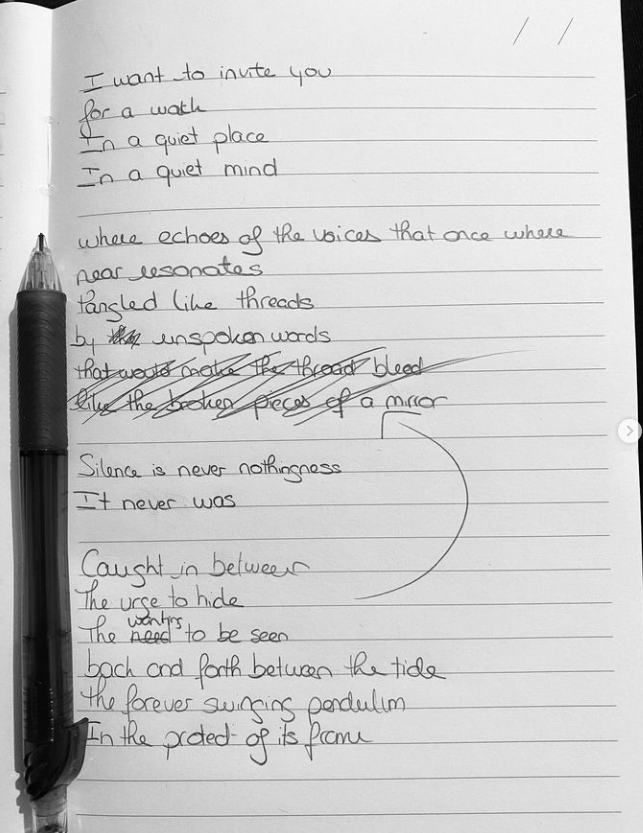 I want to invite you
for a walk
In a quiet place
In a quiet mind
where echoes of the voices that once where
near resonates
tangled like threads
by unspoken words
that would make the thread bleed
like the broken pieces of a mirror
Silence is never nothingness
It never was
Caught in between
The urge to hide
wanting
The need to be seen
back and forth between the tide
the forever swinging pendulum
In the of its frame